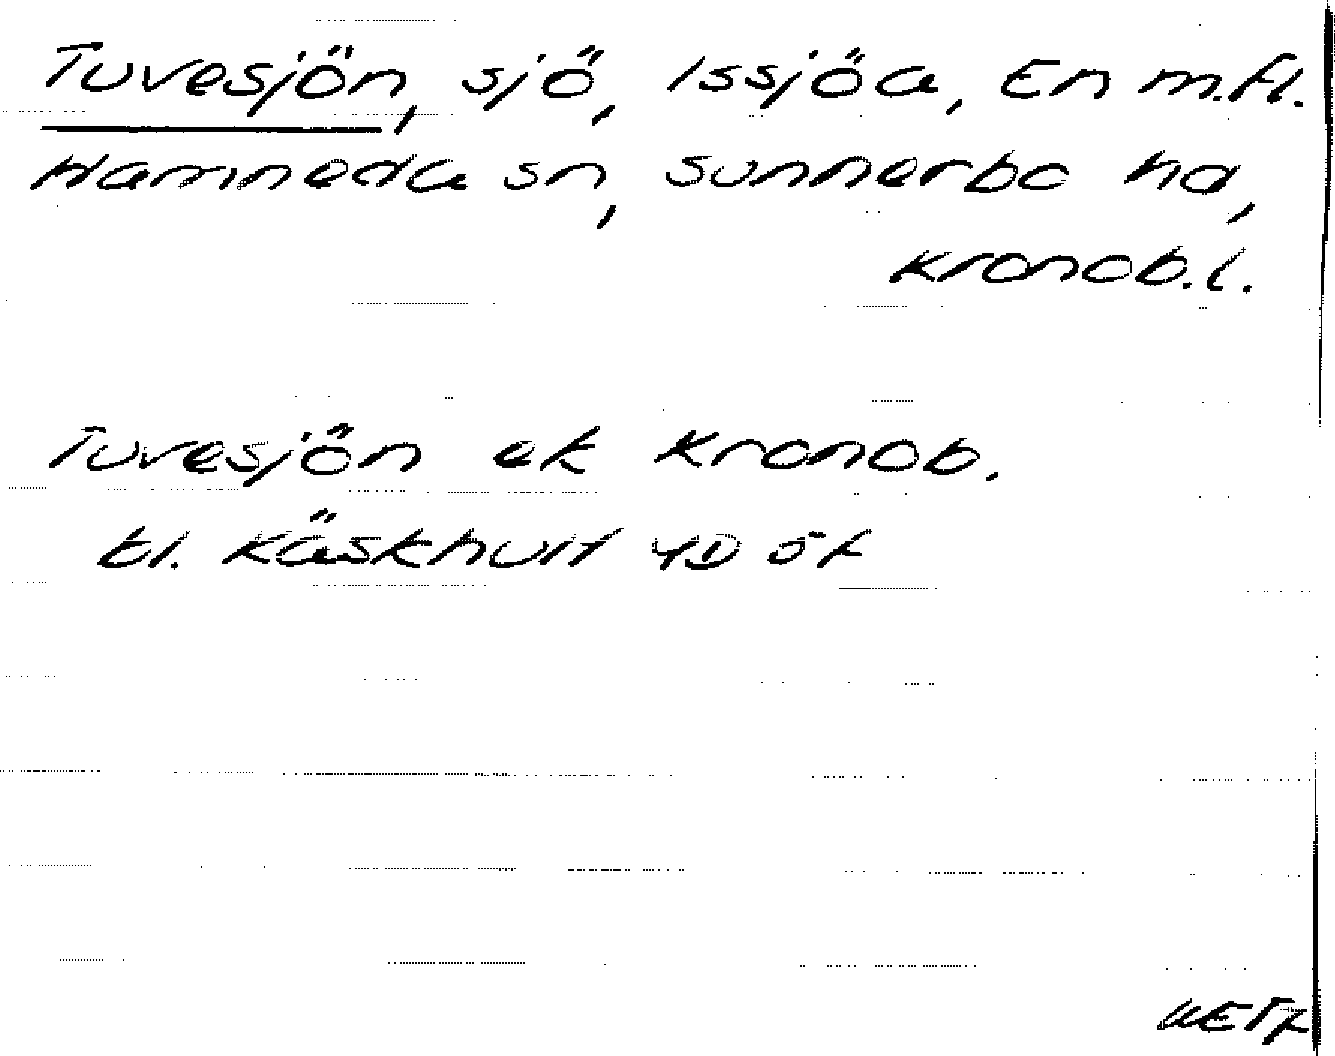 Tuvesjön, sjö, Issjöa, En m.fl.
Hamneda sn, Sunnerbo hd,
Kronob.l.
Tuvesjön ek Kronob.
bl. Käskhult 4D 5f